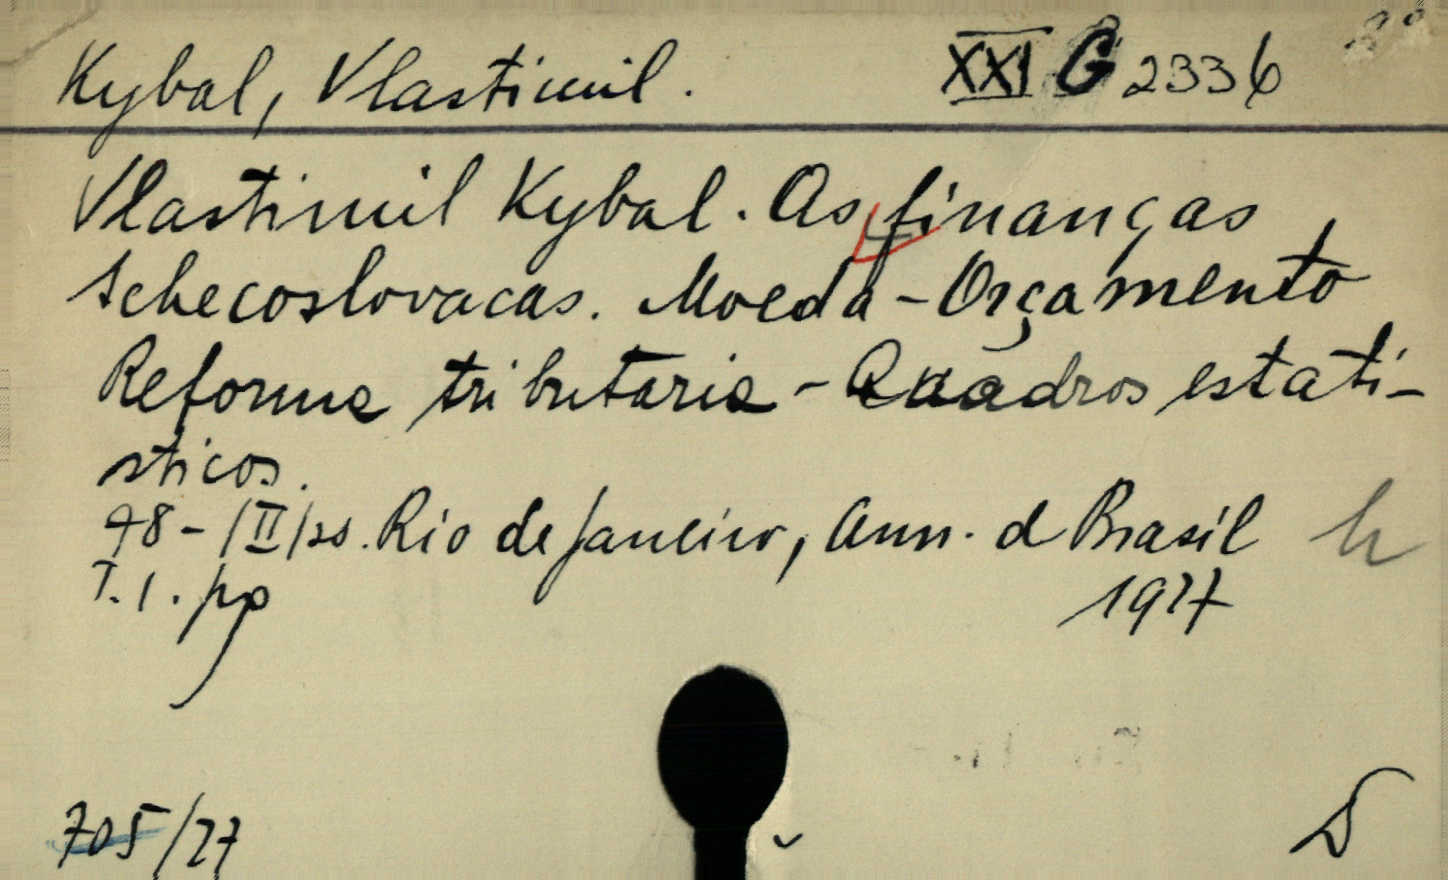 Kybal, Vlastimil. XXI G 2336
Vlastimil Kybal. As finanças
tchecoslovacas. Moeda - Orçamento
Reforma tributaria - Quadros estati-
sticos.
48 - /II/ ss. Rio de Janeiro, Ann. d Brasil
T. 1. pp 1927
705/27